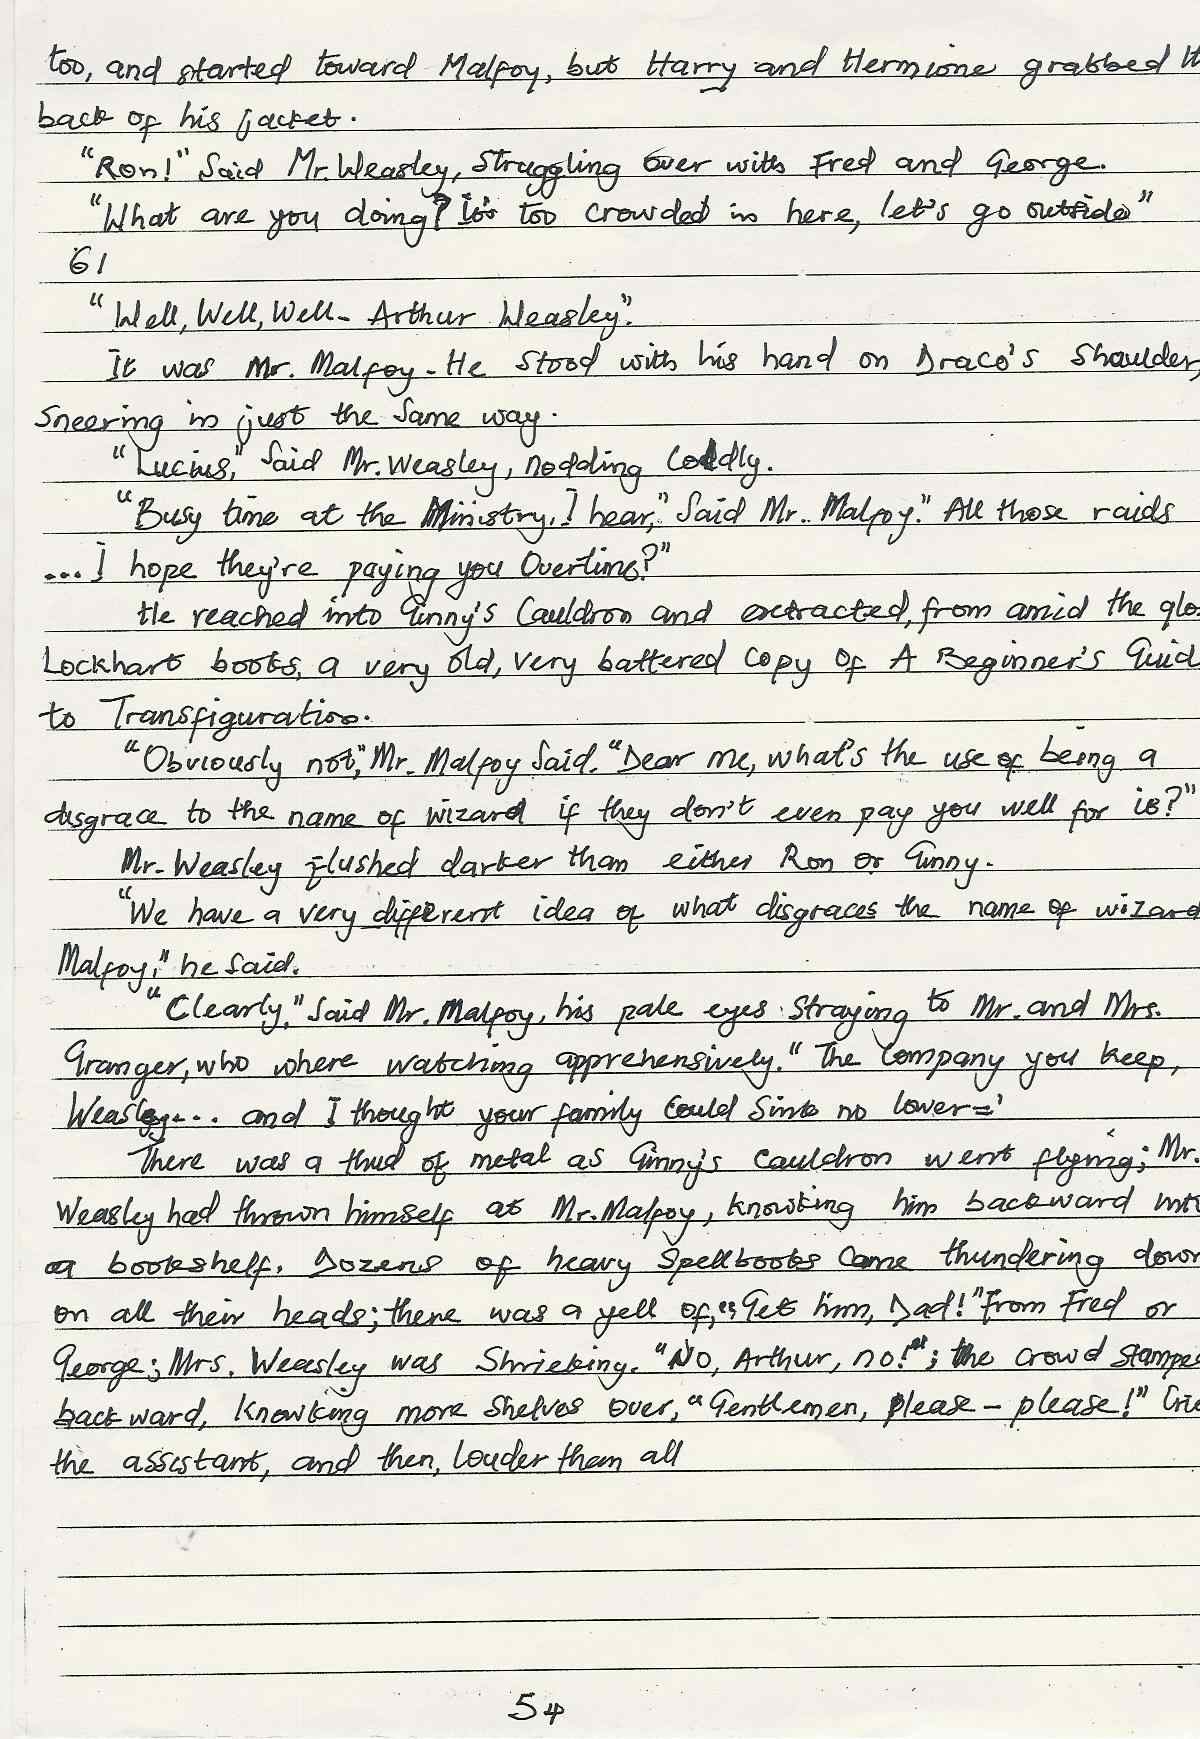 too, and started toward Malfoy, but Harry and Hermione grabbed
back of his jacket.
"Ron!" Said Mr. Weasley, Struggling over with Fred and George.
"What are you doing? It's too crowded in here, let's go outside"
61
"Well, Well, Well- Arthur Weasley".
It was Mr. Malfoy - He stood with his hand on Draco's Shoulder,
Sneering in just the Same way.
"Lucius," Said Mr. Weasley, nodding Coldly.
"Busy time at the Ministry, I hear," Said Mr. Malfoy." All those raids
... I hope they're paying you Overtime?"
He reached into Ginny's Cauldron and extracted, from amid the glo
Lockhart books, a very old, very battered copy of A Beginner's Guid
to Transfiguration.
"Obviously not," Mr. Malfoy Said. "Dear me, what's the use of being a
disgrace to the name of wizard if they don't even pay you well for it?"
Mr. Weasley flushed darker than either Ron or Ginny.
"We have a very different idea of what disgraces the name of wizard
Malfoy," he Said.
"Clearly," Said Mr. Malfoy, his pale eyes Straying to Mr. and Mrs.
Granger, who where watching apprehensively." The Company you keep,
Weasley... and I thought your family Could Sink no lower-'
There was a thud of metal as Ginny's Cauldron went flying; Mr.
Weasley had thrown himself at Mr. Malfoy, knowking him backward int
a bookshelf. Dozens of heavy Spellbooks Came thundering down
on all their heads; there was a yell of, "Get him, Dad!" From Fred or
George; Mrs. Weasley was Shrieking. "No, Arthur, no!"; the crowd stampe
backward, Knowking more Shelves over, "Gentlemen, please - please!" Crie
the assistant, and then, louder than all
54